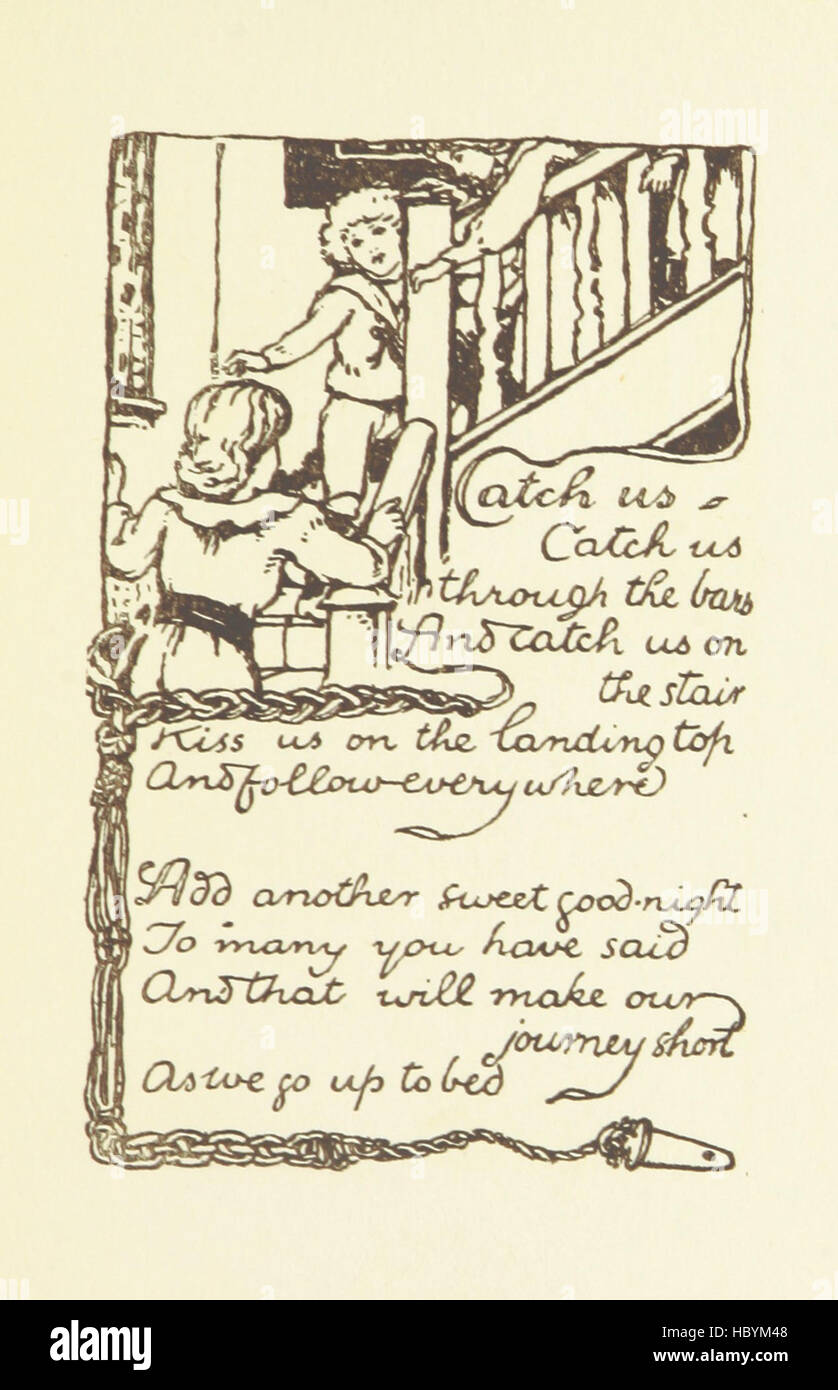 Catch us -
Catch us
through the bars
And catch us on
the stair
Kiss us on the landing top
And follow everywhere
Add another sweet good-night
To many you have said
And that will make our
journey short
As we go up to bed
alamy
Image ID: HBYM48
www.alamy.com